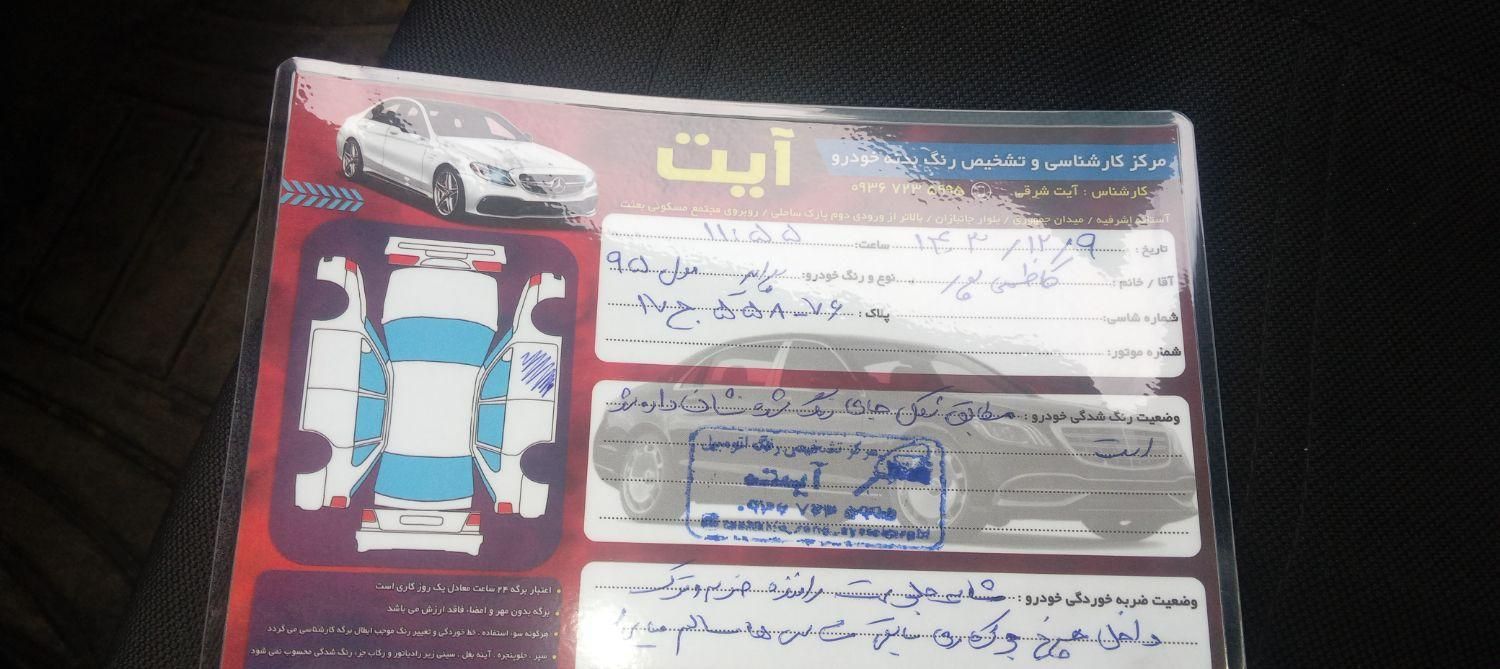 مرکز کارشناسی و تشخیص رنگ بدنه خودرو
آیت
کارشناس : آیت شرقی ۰۹۳۶ ۷۲۳ ۵۹۹۵
آستانه اشرفیه / میدان جمهوری / بلوار جانبازان / بالاتر از ورودی دوم پارک ساحلی / روبروی مجتمع مسکونی بعثت
تاریخ : ۱۴۰۳/۱۲/۹ ساعت: ۱۱:۵۵
آقا / خانم : کاظمی پور نوع و رنگ خودرو: مدل ۹۵
شماره شاسی: پلاک : ۷۶ - ۵۵۸ ج ۱۷
شماره موتور:
وضعیت رنگ شدگی خودرو : مطابق شکل جاهای رنگ شده نشان داده شده
است
مرکز تشخیص رنگ اتومبیل
وضعیت ضربه خوردگی خودرو : شاسی جلو سمت راننده ضربه و ترک
داخل چرخ سالم
اعتبار برگه ۲۴ ساعت معادل یک روز کاری است
برگه بدون مهر و امضاء فاقد ارزش می باشد
هرگونه سوء استفاده ، خط خوردگی و تغییر رنگ موجب ابطال برگه کارشناسی می گردد
سپر ، جلوپنجره ، آینه بغل ، سینی زیر رادیاتور و رکاب جزء رنگ شدگی محسوب نمی شود